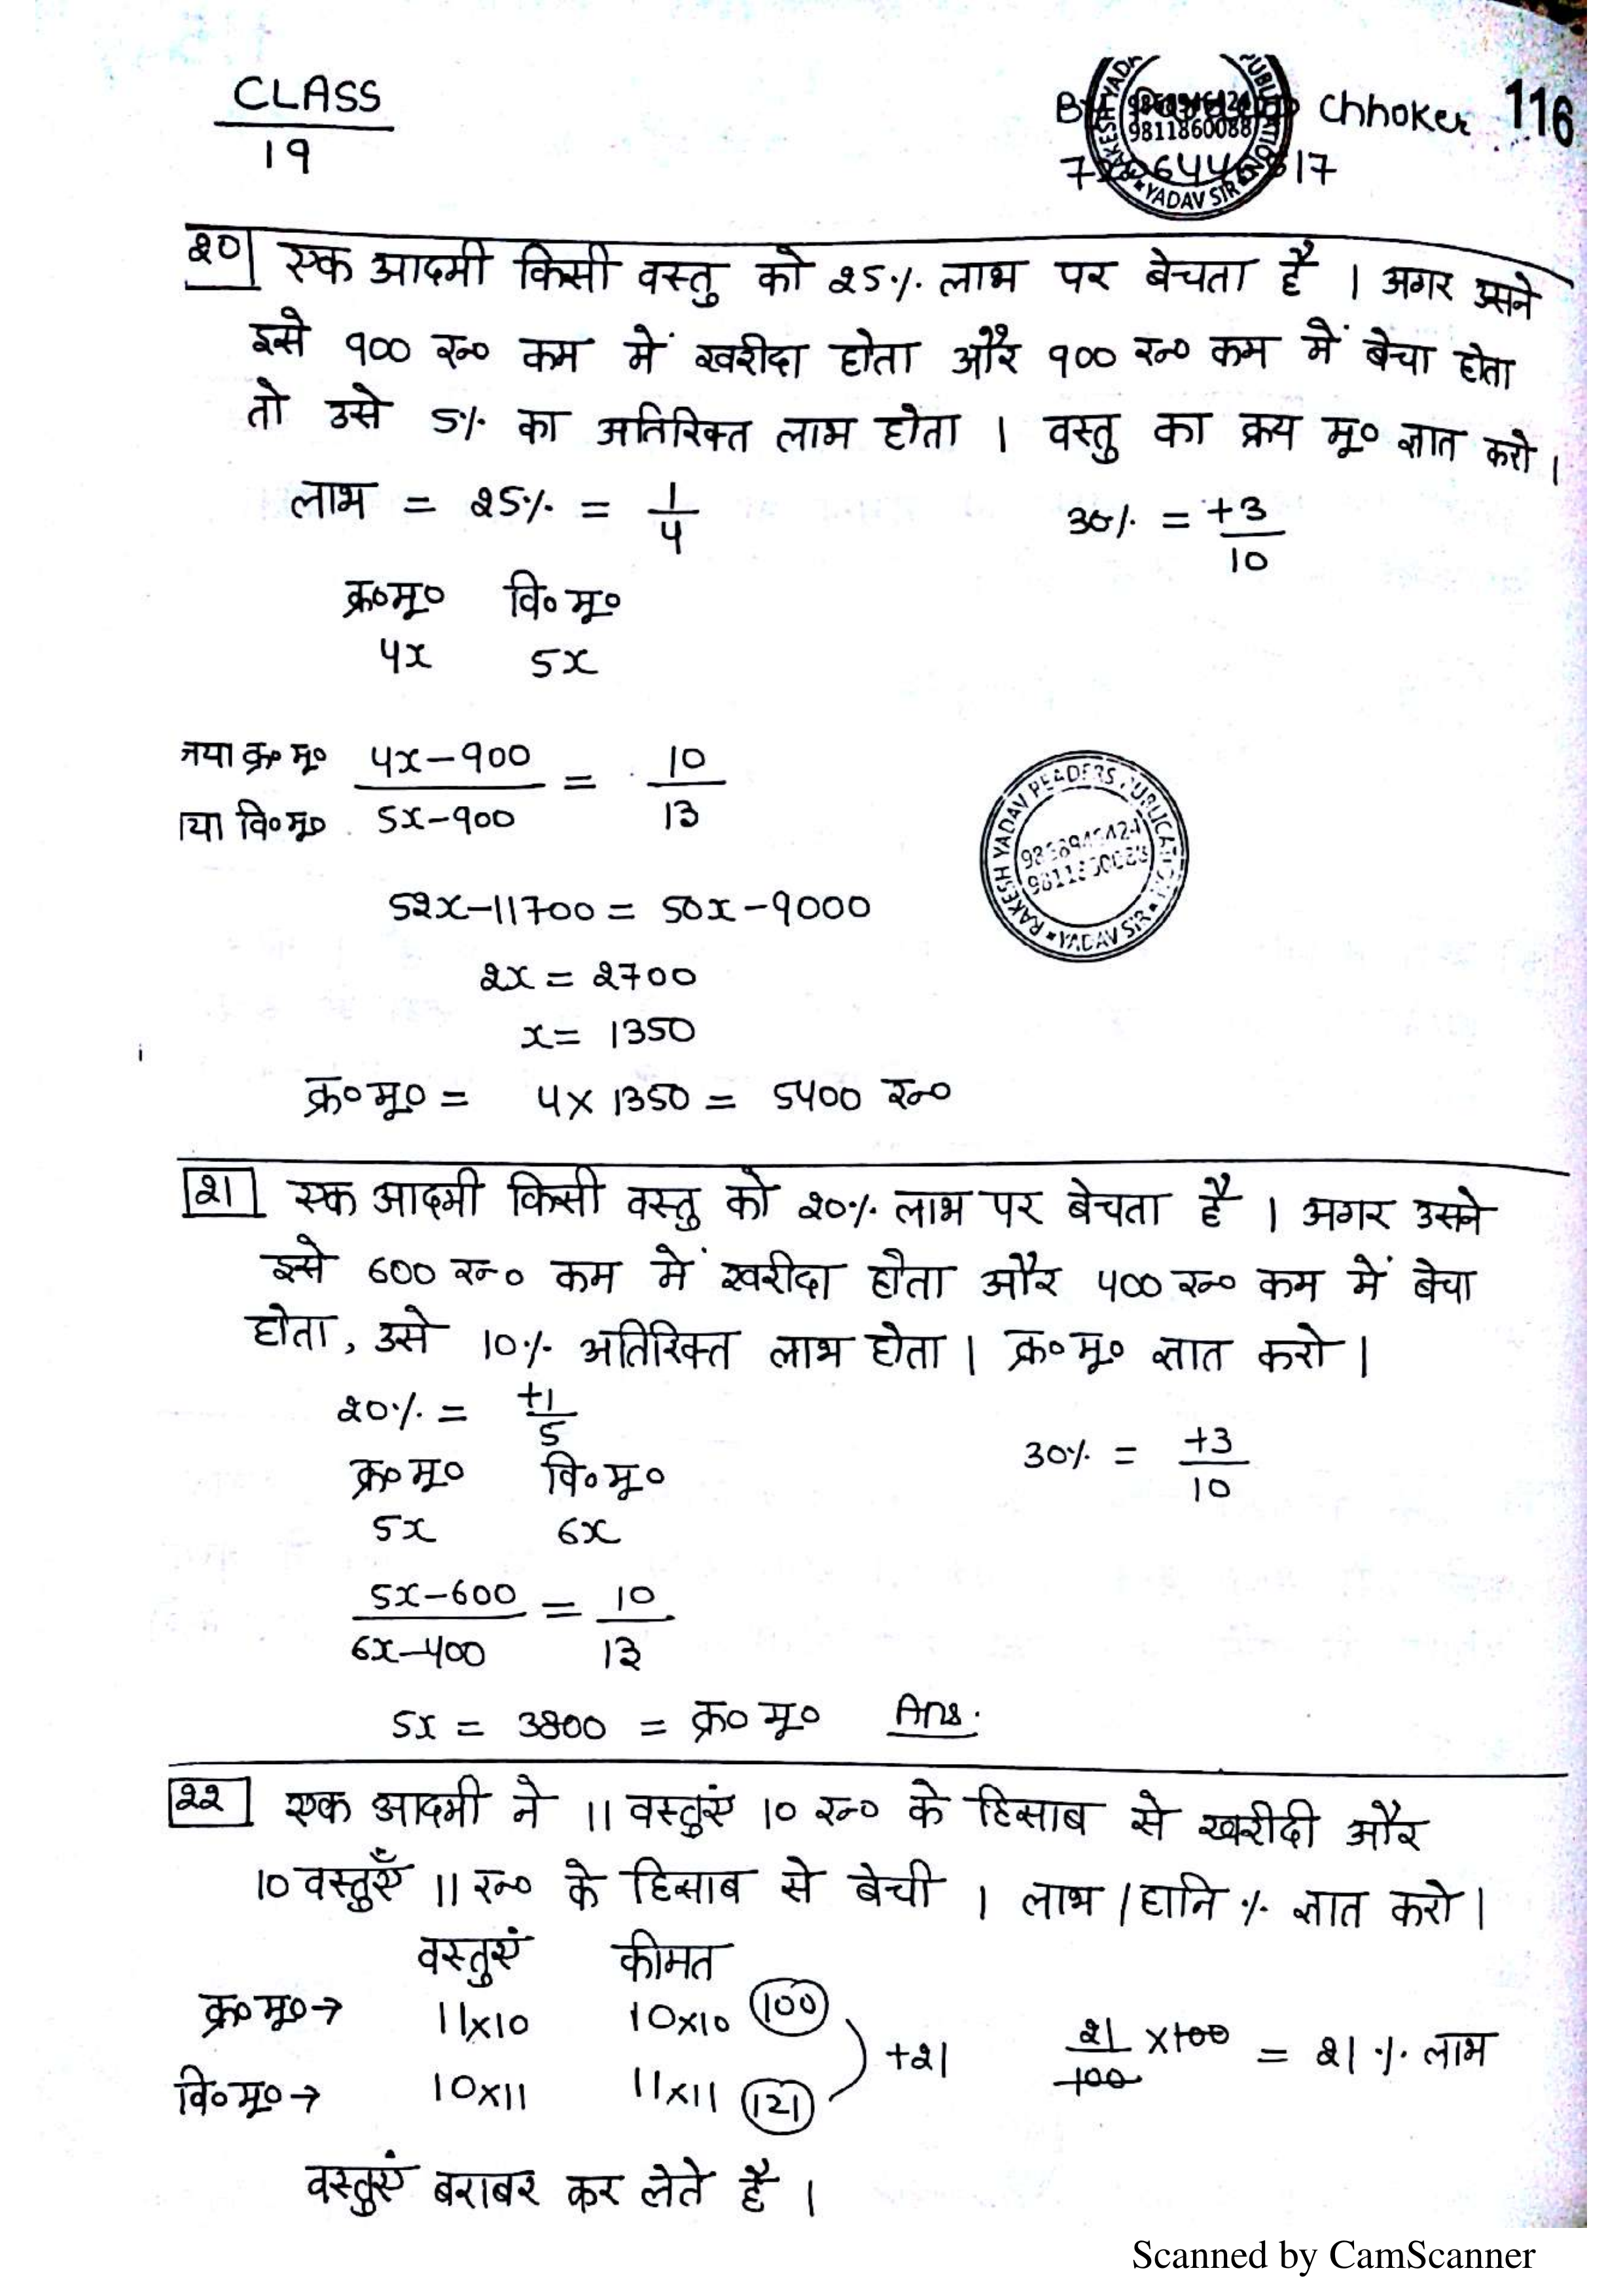 CLASS
19
By Chhoker 116
9811860088
YADAV SIR
20 एक आदमी किसी वस्तु को 25% लाभ पर बेचता है । अगर उसने
इसे 900 रु० कम में खरीदा होता और 900 रु० कम में बेचा होता
तो उसे 5% का अतिरिक्त लाभ होता । वस्तु का क्रय मू० ज्ञात करो ।
लाभ = 25% = 1/4 30% = +3/10
क्र०मू० वि०मू०
4x 5x
नया क्र०मू० 4x-900 = 10
नया वि०मू० 5x-900 13
RAKESH YADAV READERS PUBLICATION
YADAV SIR
52x-11700 = 50x-9000
2x = 2700
x = 1350
क्र०मू० = 4×1350 = 5400 रु०
21 एक आदमी किसी वस्तु को 20% लाभ पर बेचता है । अगर उसने
इसे 600 रु० कम में खरीदा होता और 400 रु० कम में बेचा
होता, उसे 10% अतिरिक्त लाभ होता । क्र०मू० ज्ञात करो ।
20% = +1/5
30% = +3/10
क्र०मू० वि०मू०
5x 6x
5x-600 = 10
6x-400 13
5x = 3800 = क्र०मू० Ans.
22 एक आदमी ने 11 वस्तुएं 10 रु० के हिसाब से खरीदी और
10 वस्तुएँ 11 रु० के हिसाब से बेची । लाभ/हानि % ज्ञात करो ।
वस्तुएं कीमत
क्र०मू०→ 11×10 10×10 100
+21 21/100 ×100 = 21% लाभ
वि०मू०→ 10×11 11×11 121
वस्तुएं बराबर कर लेते है ।
Scanned by CamScanner